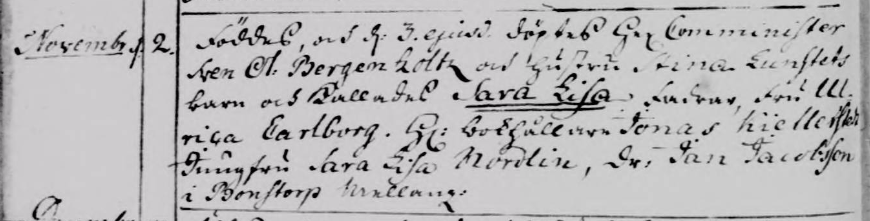 Novembr: d. 2. Föddes, och d: 3. ejusd. döptes Hr Comminister
Sven Ol. Bergenholtz och hustru Stina Lunstets
barn och kallades Sara Lisa. Fadrar, Fru Ul-
rica Carlborg. Hr: bokhållare Jonas Kiellerstedt
Jungfru Sara Lisa Nordlin, Dr: Jan Jacobsson
i Bonstorp